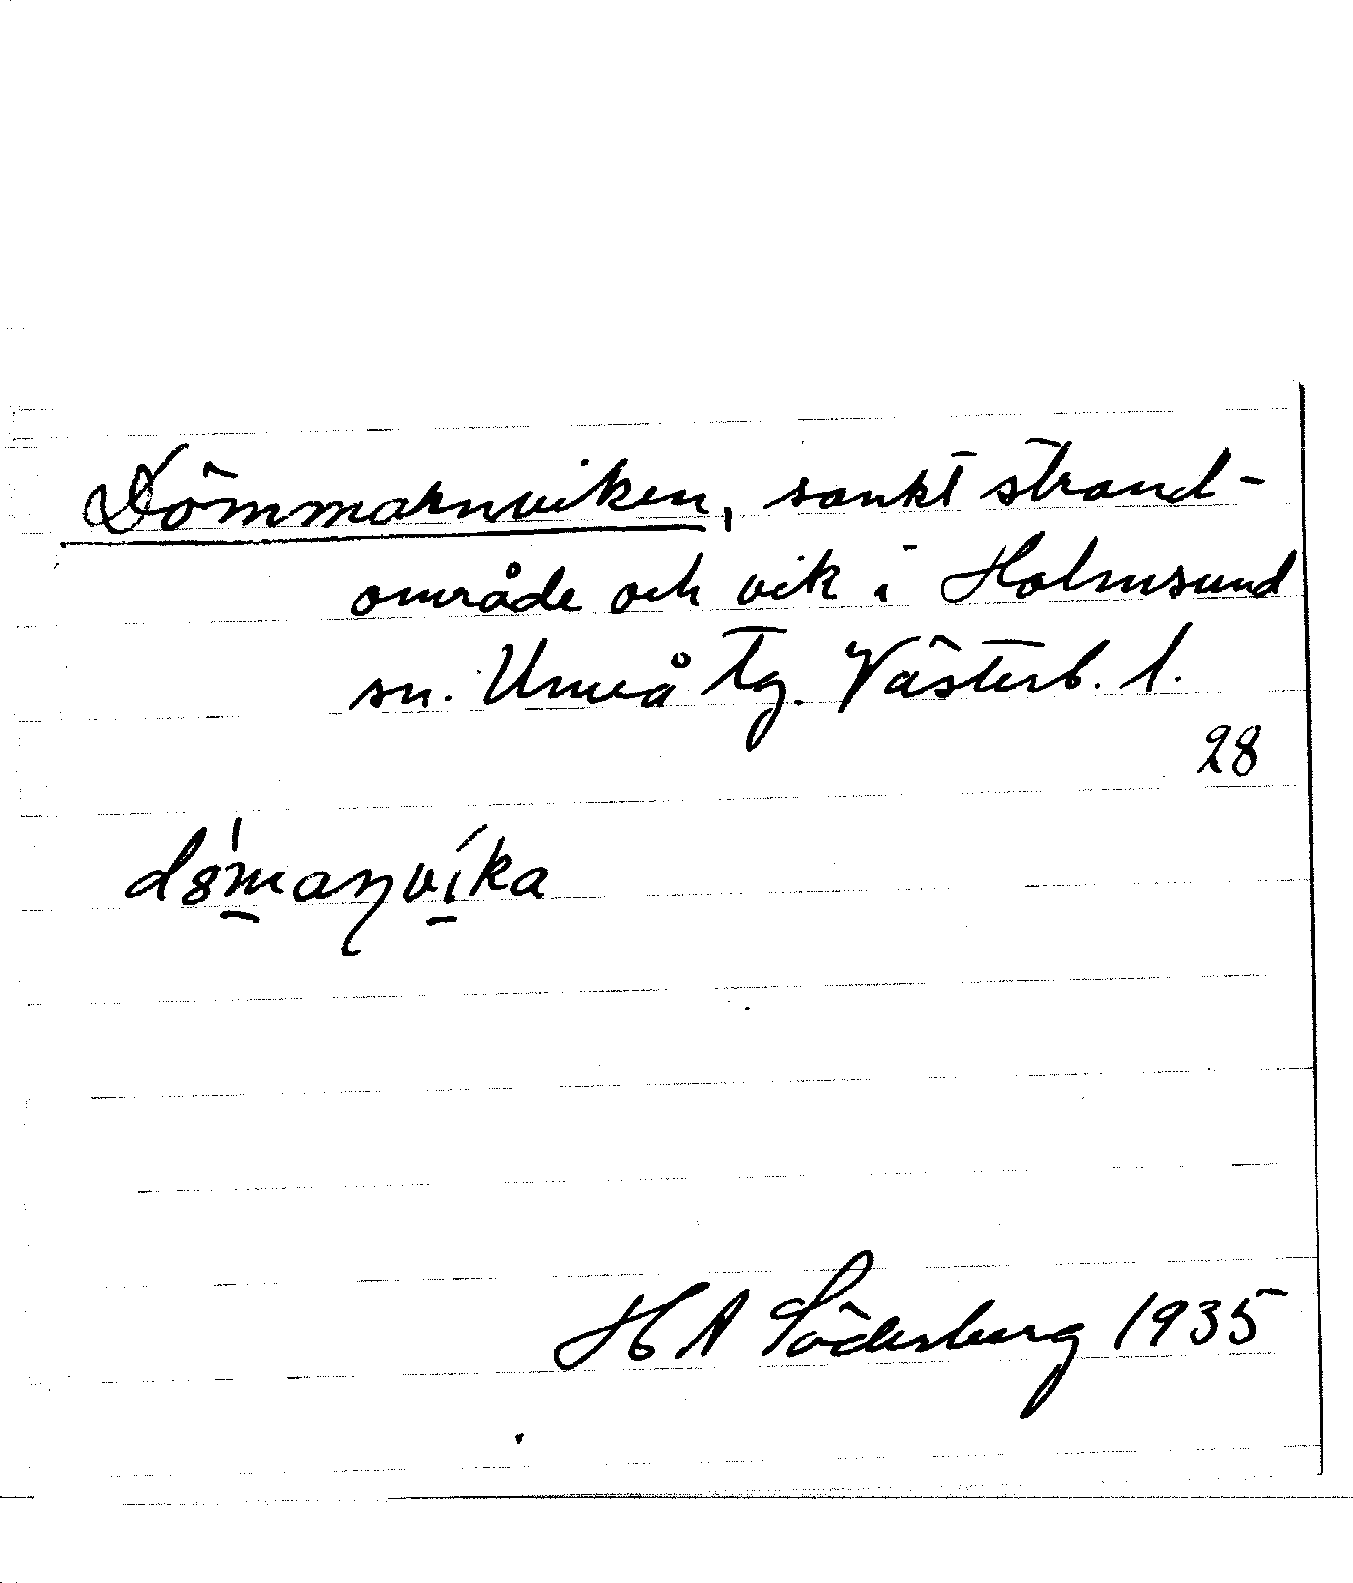 Dömmarnviken, sankt strand-
område och vik i Holmsund
sn. Umeå tg. Västerb. l.
28
dömaɳvika
H A Söderberg 1935